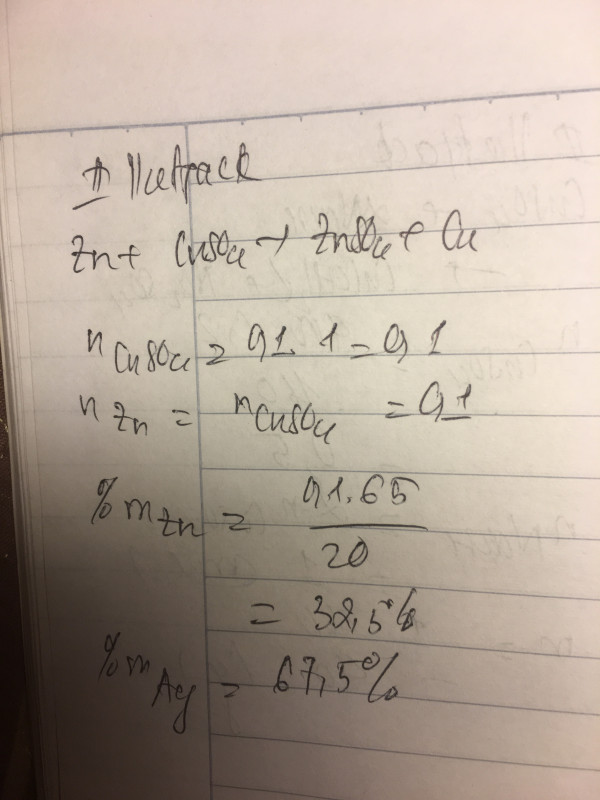 Zn + CuSO4 → ZnSO4 + Cu
nCuSO4 = 0,1 . 1 = 0,1
nZn = nCuSO4 = 0,1
%mZn = 0,1.65
20
= 32,5%
%mAg = 67,5%